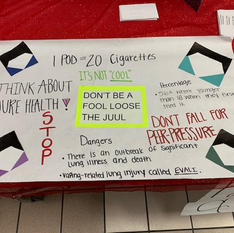 1 POD = 20 Cigarettes
IT'S NOT "COOL"
THINK ABOUT
YOUR HEALTH
STOP
DON'T BE A
FOOL LOOSE
THE JUUL
Percentage
than 18 when they first
DON'T FALL FOR
PEER-PRESSURE
Dangers
• There is an outbreak of significant
lung illness and death.
• Vaping-related lung injury called EVALI.